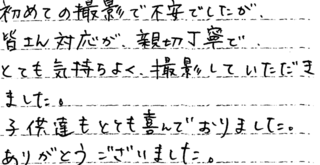 初めての撮影で不安でしたが、
皆さん対応が、親切丁寧で、
とても気持ちよく、撮影していただき
ました。
子供達もとても喜んでおりました。
ありがとうございました。